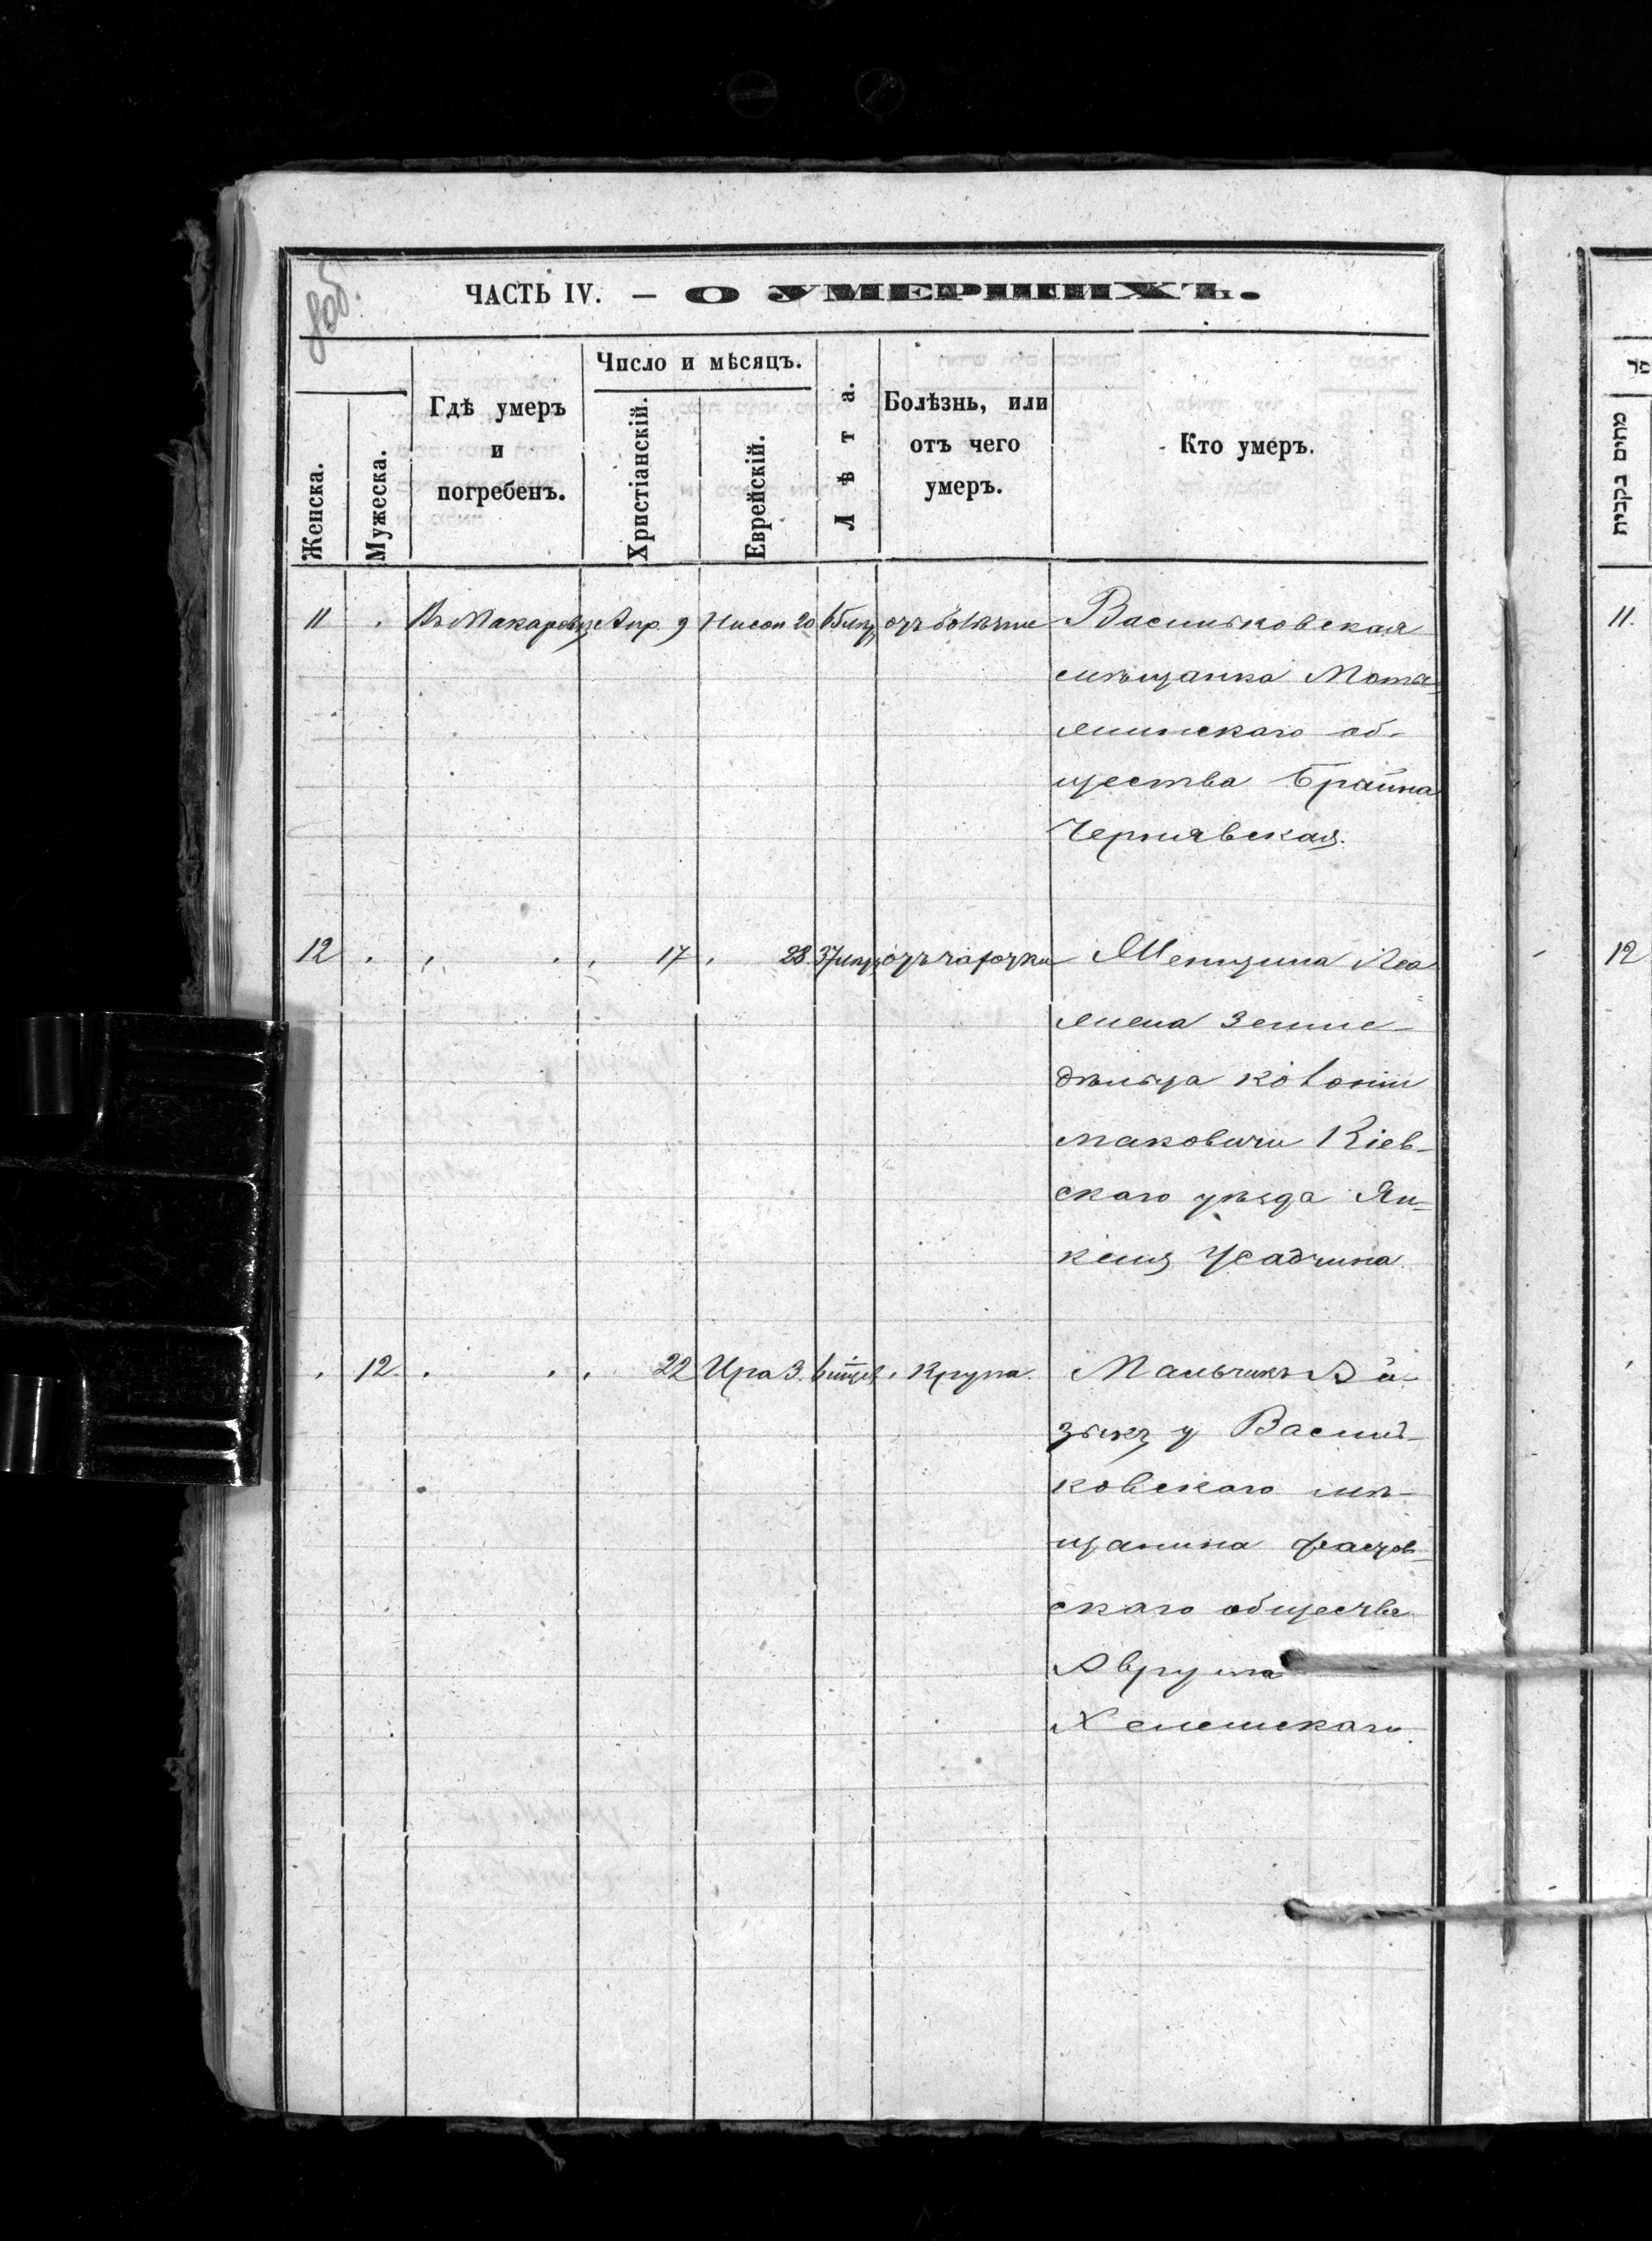 ЧАСТЬ IV. — О УМЕРШИХЪ.
Женска.
Мужеска.
Гдѣ умеръ
и
погребенъ.
Число и мѣсяцъ.
Христіанскій.
Еврейскій.
Лѣта.
Болѣзнь, или
отъ чего
умеръ.
Кто умеръ.
11 Въ Макаровѣ Апр. 9 Нисон 20 отъ болѣзни Васильковская
мѣщанка Моты-
лижскаго об-
щества Брайна
Чернявская.
12 17 28 37 отъ чахотки Женщина
Земле-
дѣльца колоніи
маковичи Кіев-
скаго уѣзда Ян-
келя Усадчина
12. 22 Ира 3. Крупа. Мальчикъ
у Василь-
ковскаго мѣ-
щанина фастов-
скаго общества
Аврума
מתים נקבות
11.
12